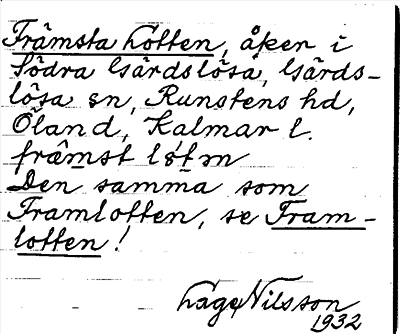 Främsta lotten, åker i
Södra Gärdslösa, Gärds-
lösa sn, Runstens hd,
Öland, Kalmar l.
främst
Den samma som
Framlotten, se Fram-
lotten!
Lage Nilsson
1932